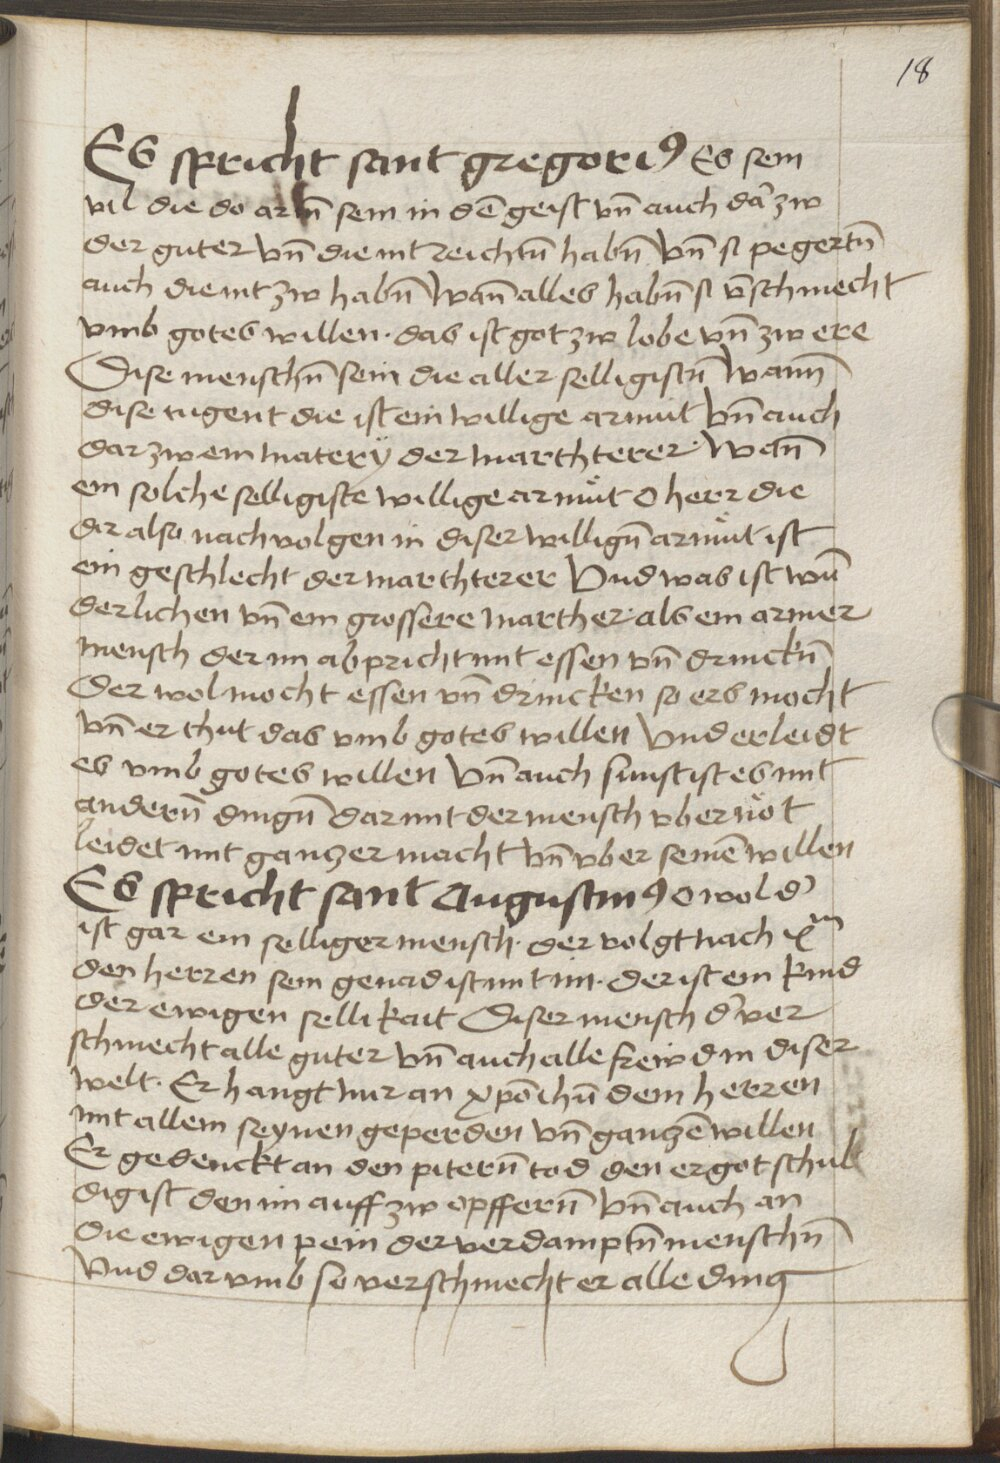 18
Es spricht sant gregori9 Es sein
vil die do arm̄ sein in dē geist vn̄ auch da'zw
der guter vn̄ die nit reichtū habn̄ vn̄ si pegertn̄
auch die nit zw habn̄ Wan̄ alles habn̄ si v̄schmecht
vmb gotes willen · das ist got zw lobe vn̄ zw ere
Dise menschn̄ sein die aller selligistn̄ Wann̄
dise tugent die ist ein willige armut Vn̄ auch
dar zw ein matery der marthterer · Wan̄
ein solche selligiste willige armůt O herr die
dir also nachvolgen in diser willign̄ armůt ist
ein geschlecht der marthterer Vnd was ist wun̄
derlichen vn̄ ein grossere marther · als ein armer
mensch der im abpricht mit essen vn̄ drinckn̄
Der wol mocht essen vn̄ drincken so ers mocht
Vn̄ er thut das vmb gotes willen Vnd erleidt
es vmb gotes willen Vn̄ auch sunst ist es mit
andern̄ dingn̄ dar mit der mensch vber nöt
leidet mit ganzer macht vn̄ vber seinē willen
Es spricht sant Augustin9 O wol d'
ist gar ein selliger mensch · der volgt nach xm̄
den herren sein genad ist mit im · der ist ein kind
der ewigen sellikait Diser mensch d' ver
schmecht alle guter vn̄ auch alle frewd in diser
welt · Er hangt nur an xpō ihū dem herren
mit allem seynen geperden vn̄ ganzē willen
Er gedenckt an den pitern̄ tod den er got schul
dig ist den im auff zw opffern̄ Vn̄ auch an
die ewigen pein der verdamptn̄ menschn̄
Vnd dar vmb so verschmecht er alle ding